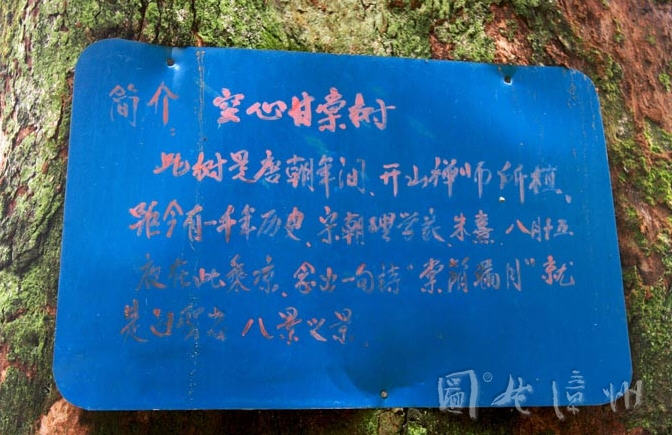 简介: 空心甘棠树
此树是唐朝年间、开山禅师所植、
距今有一千年历史、宋朝理学家、朱熹、八月十五
夜在此乘凉、念出一句诗“棠荫漏月”就
是这 八景之景、
图说漳州